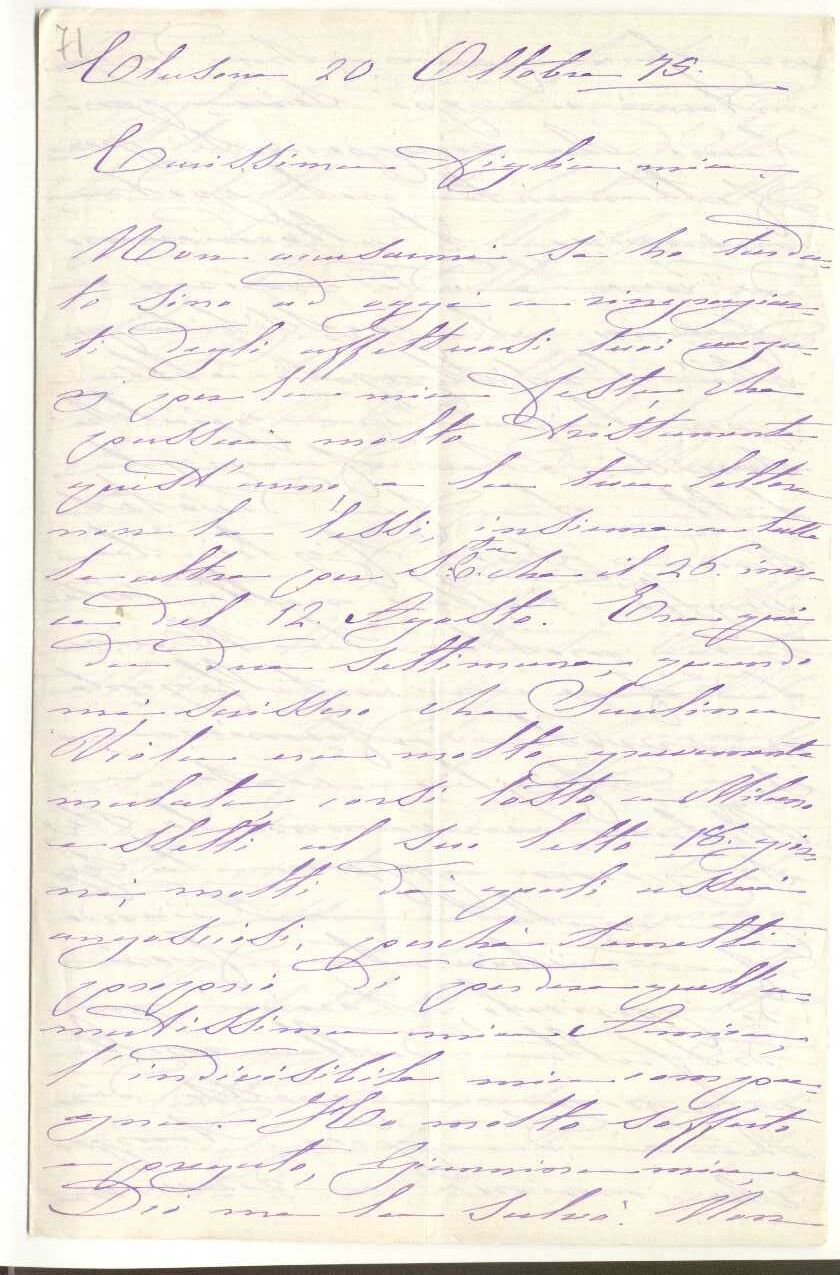 71
Clusone 20. Ottobre 75.
Carissima figlia mia,
Non accusarmi se ho tarda-
to sino ad oggi a ringraziar-
ti degli affettuosi tuoi augu-
rj per la mia festa, che
passai molto tristamente
quest'anno, e la tua lettera
non la lessi, insieme a tutte
le altre per S.ta C. che il 26. inve-
ce del 12. Agosto. Ero qui
da due settimane, quando
mi scrissero che Paolina
Viola era molto gravemente
malata, corsi tosto a Milano
e stetti al suo letto 18. gior-
ni, molti dei quali assai
angosciosi, perchè temetti
proprio di perdere quell'a-
matissima mia Amica,
l'indivisibile mia compa-
gna. Ho molto sofferto
e pregato, Giannina mia, e
Dio me la salvò. Non